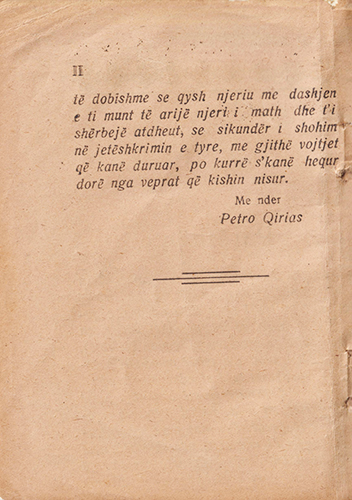 II
të dobishme se qysh njeriu me dashjen
e ti munt të arijë njeri i math dhe t'i
shërbejë atdheut, se sikundër i shohim
në jetëshkrimin e tyre, me gjithë vojtjet
që kanë duruar, po kurrë s'kanë hequr
dorë nga veprat që kishin nisur.
Me nder
Petro Qirias